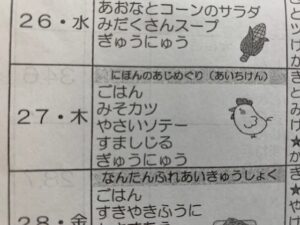 26・水
あおなとコーンのサラダ
みだくさんスープ
ぎゅうにゅう
にほんのあじめぐり（あいちけん）
27・木
ごはん
みそカツ
やさいソテー
すましじる
ぎゅうにゅう
なんたんふれあいきゅうしょく
28・金
ごはん
すきやきふうに